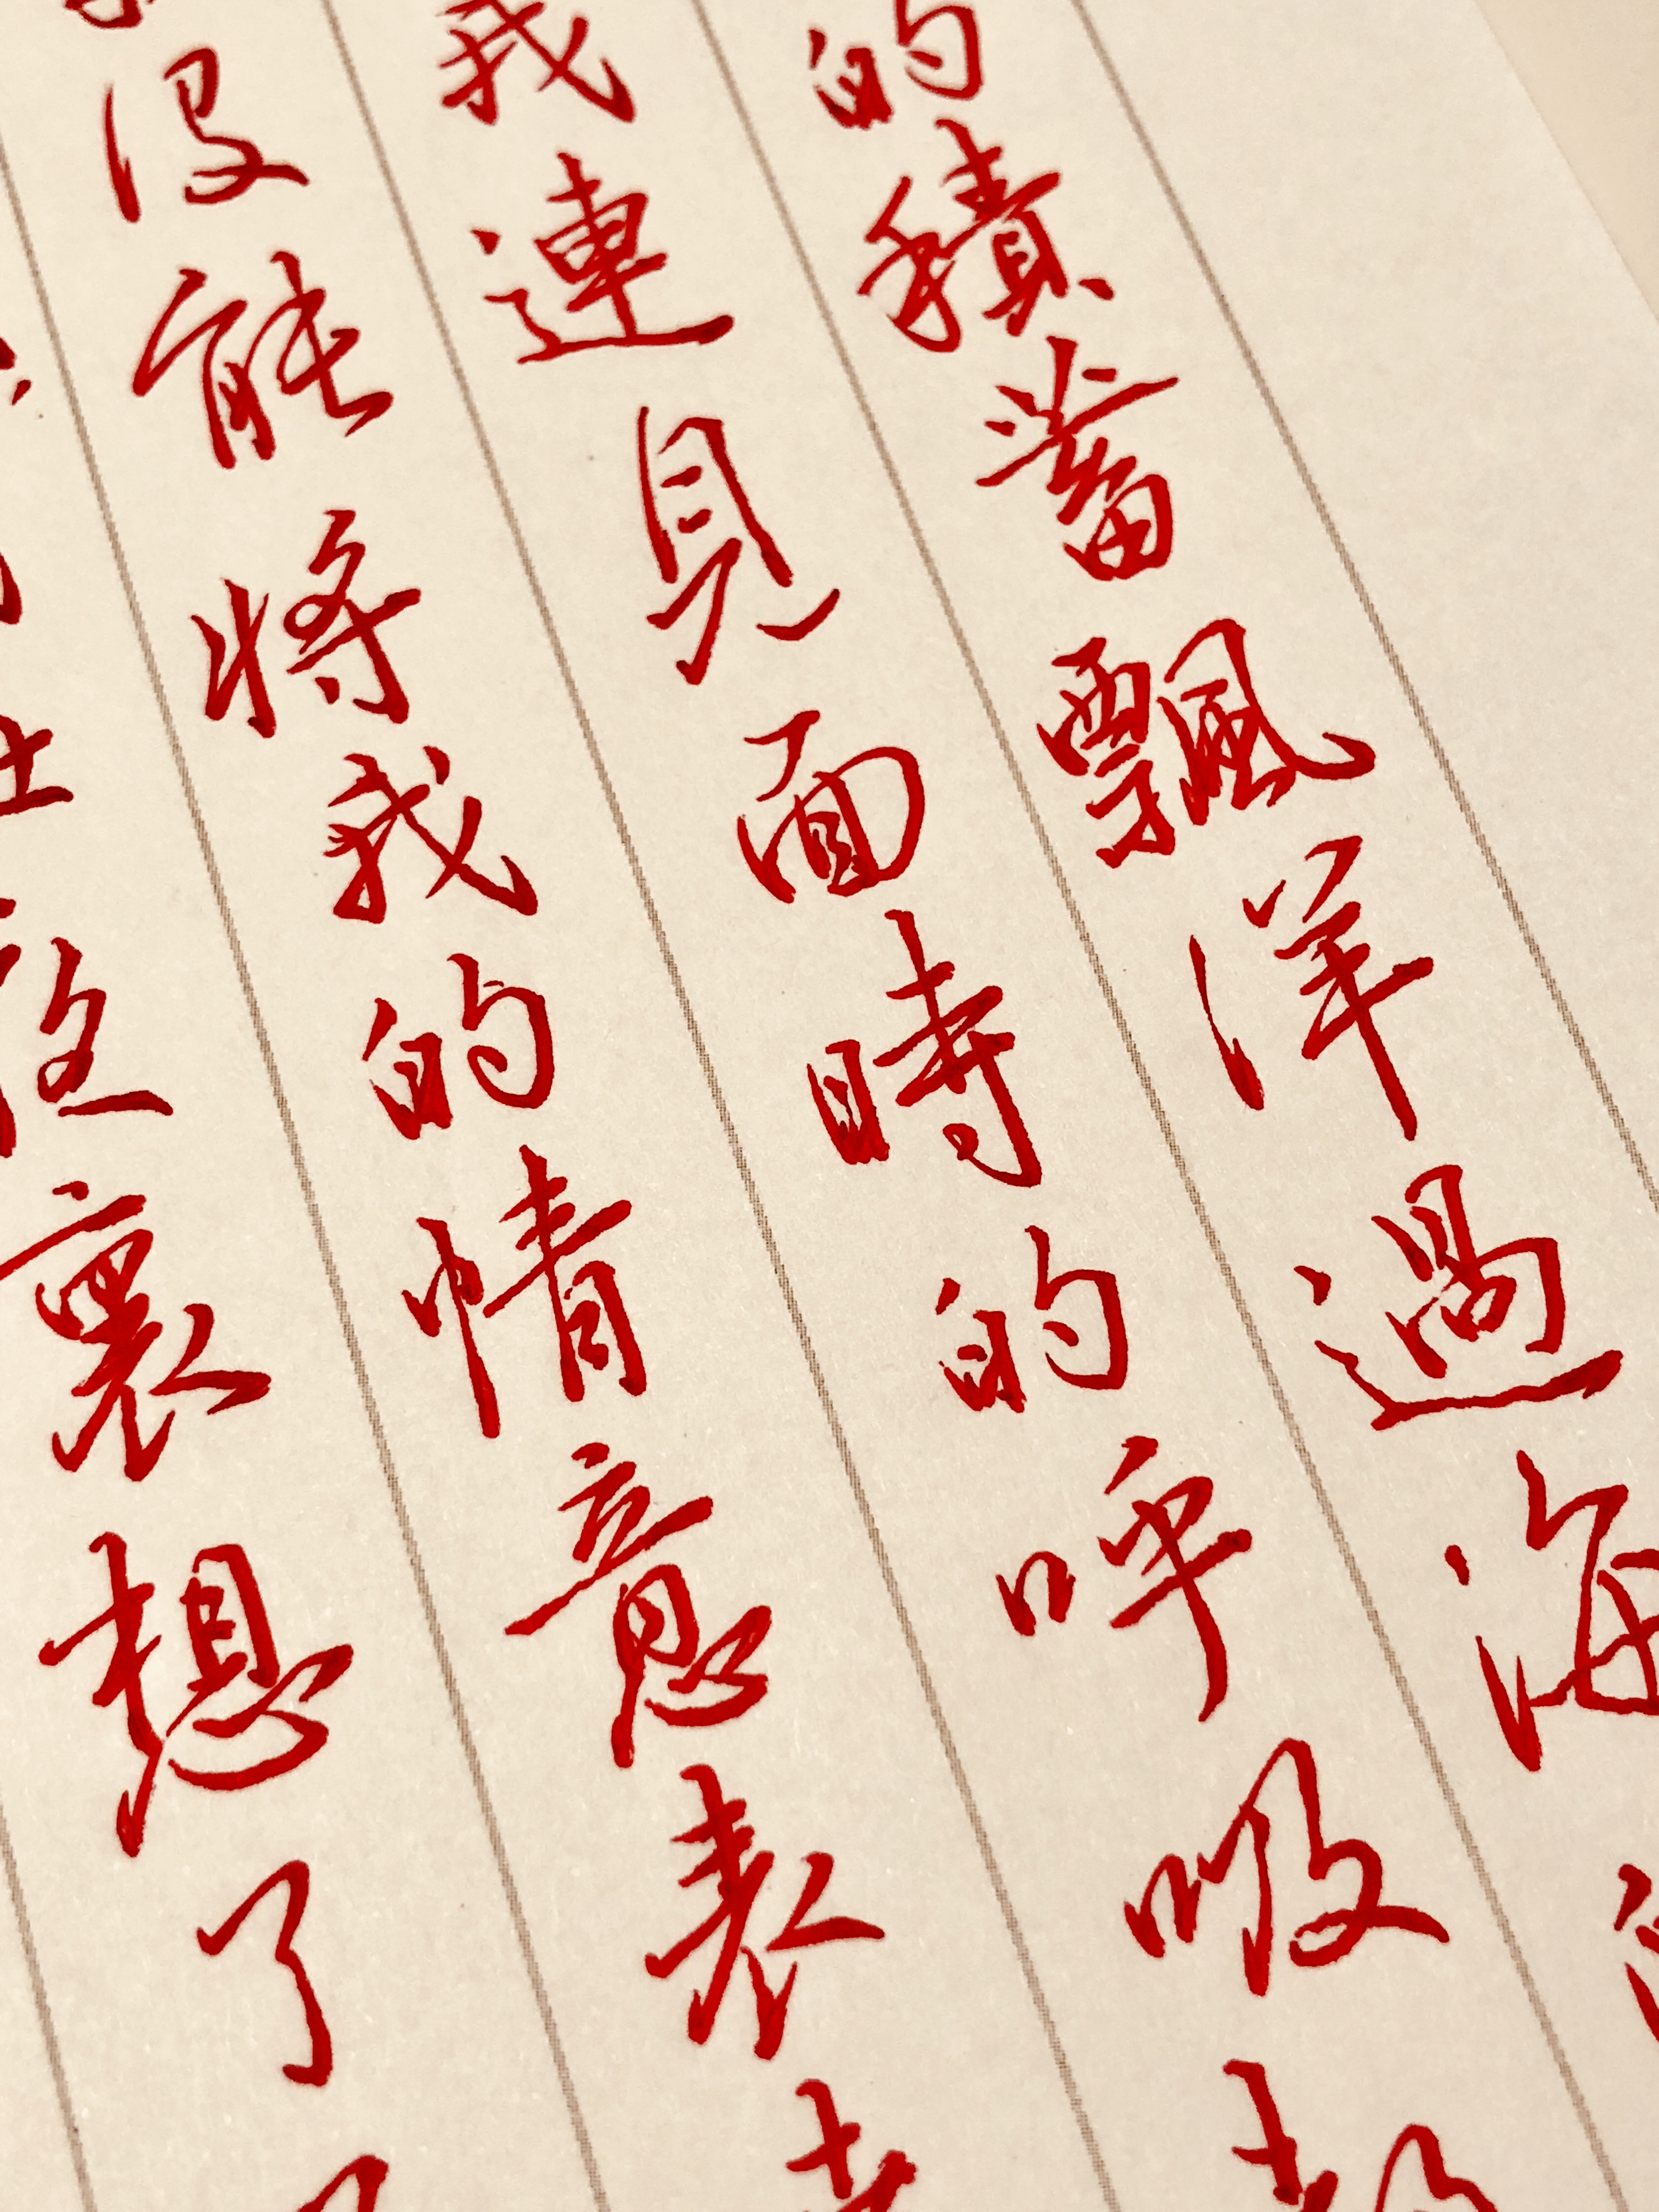 的積蓄飄洋過海
我連見面時的呼吸都
沒能將我的情意表
裏想了